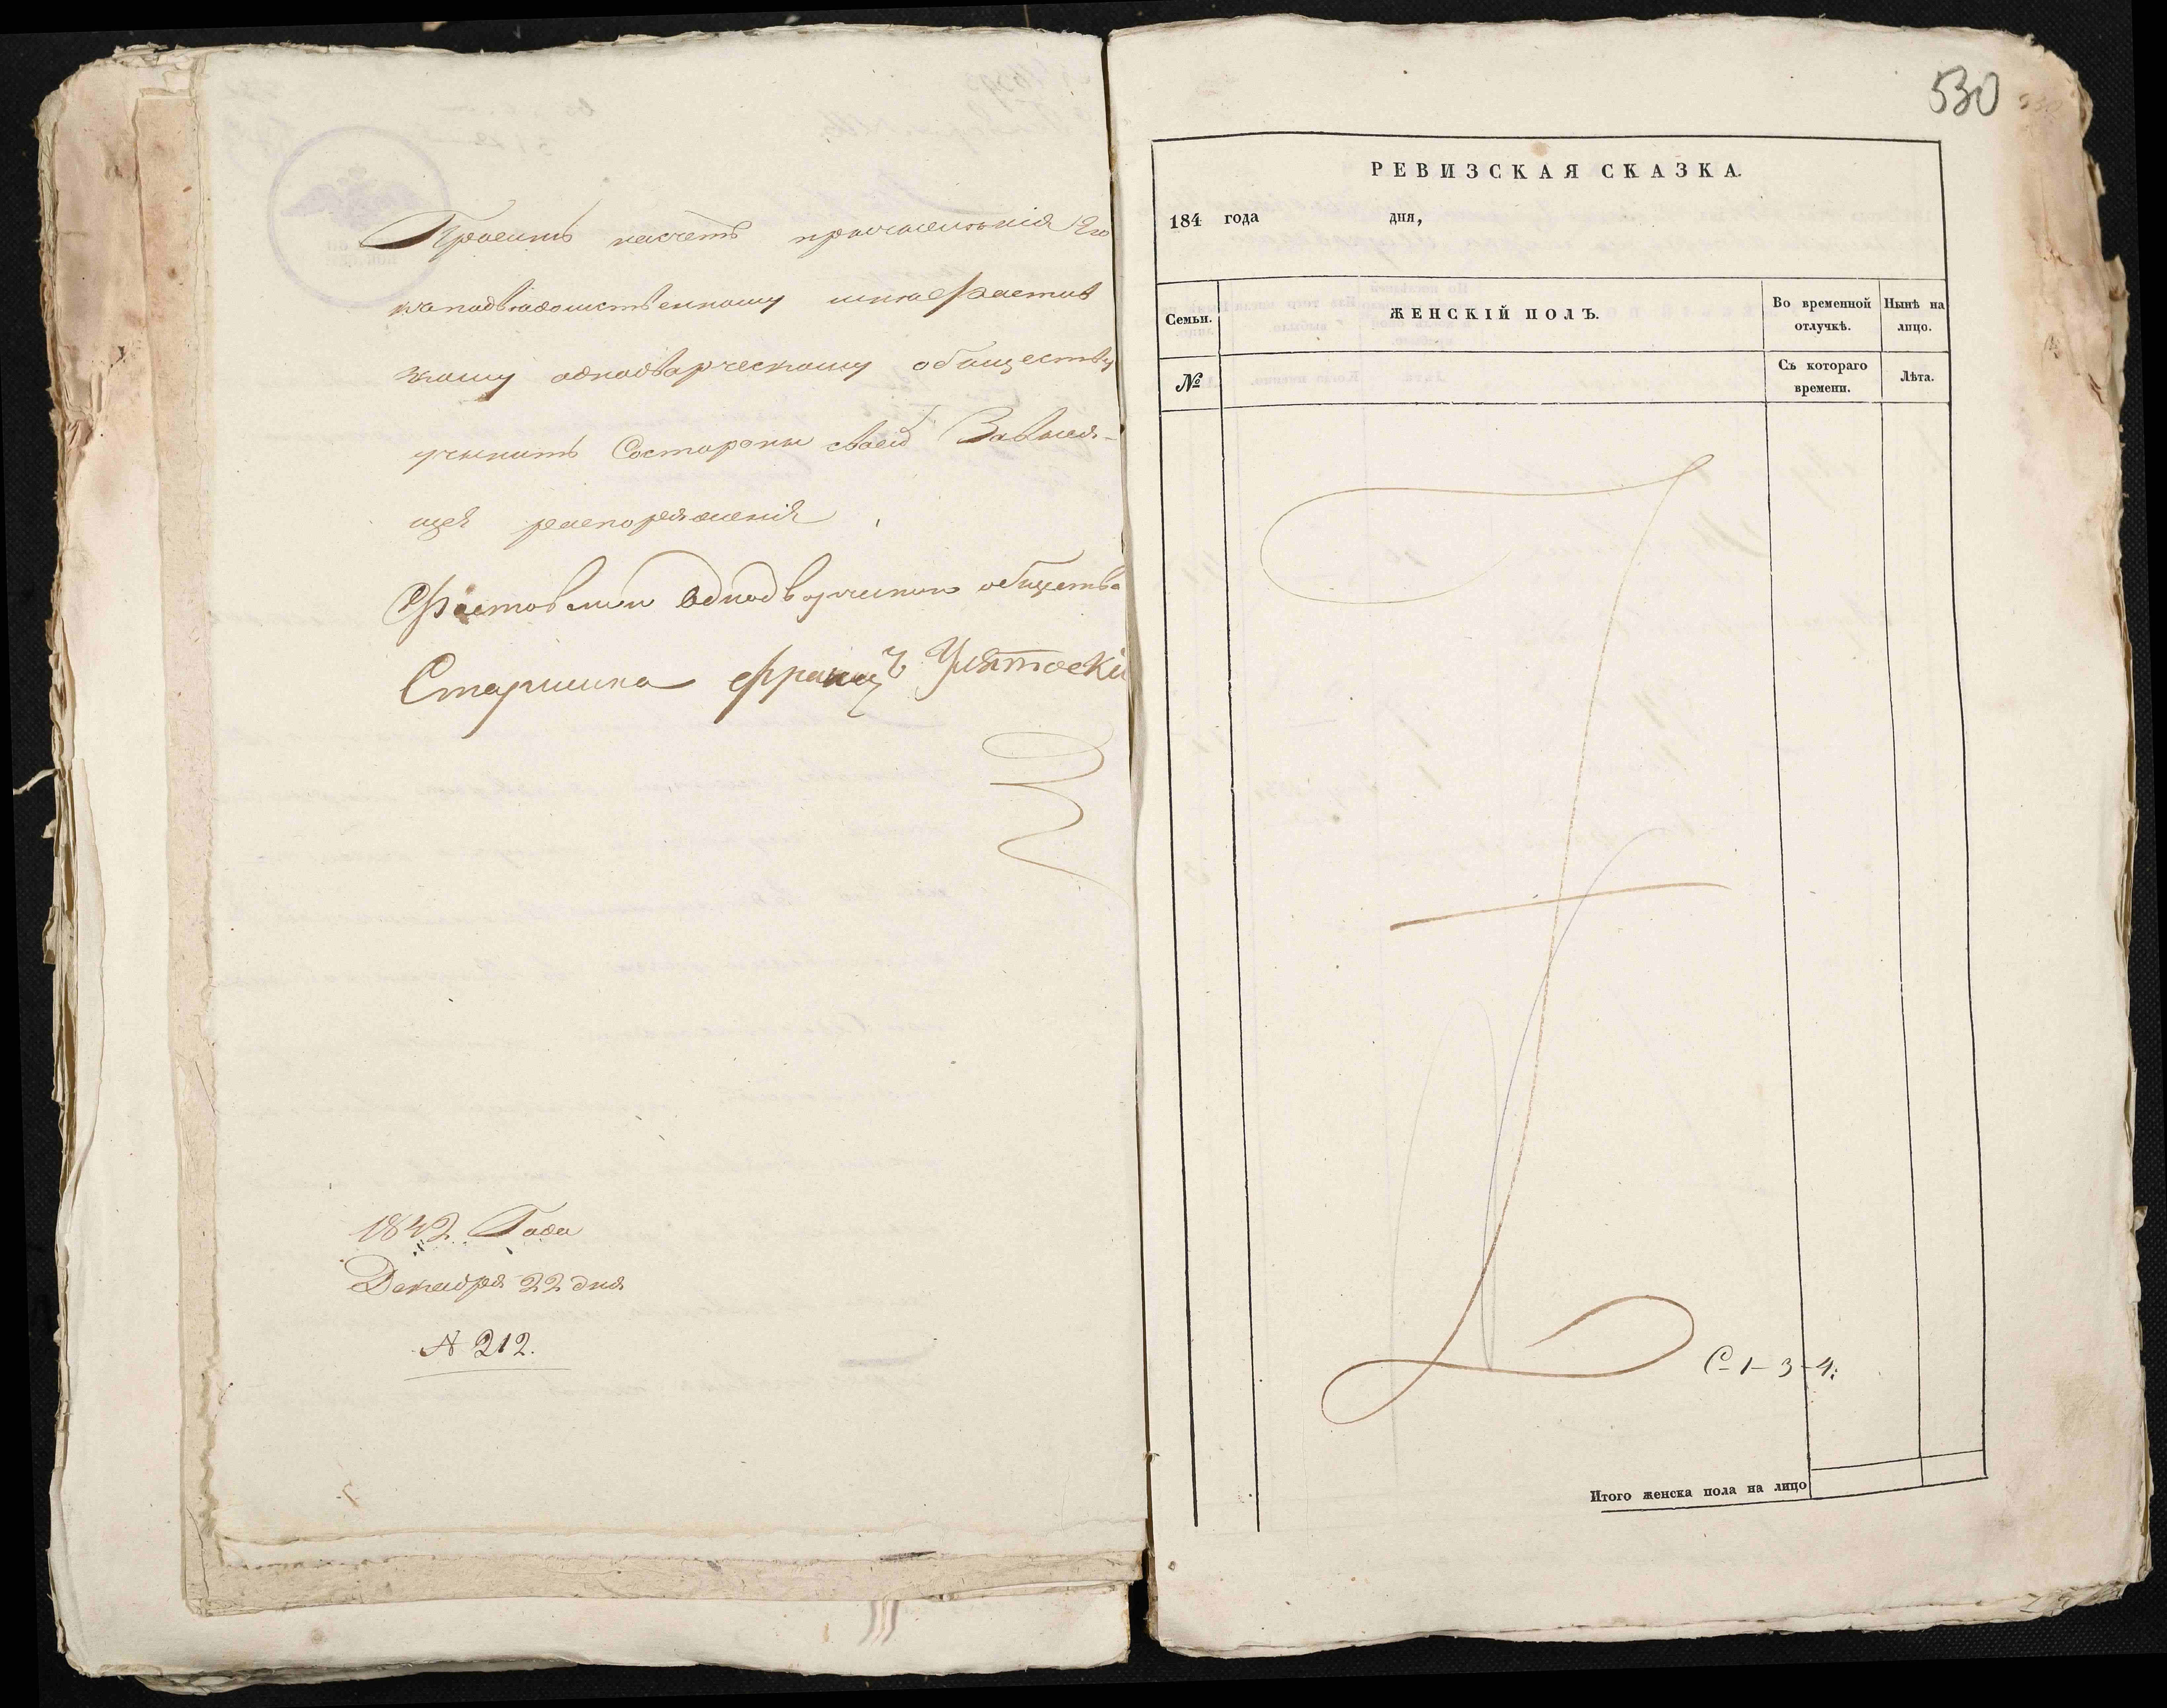 Просить насчетъ причисленія Его
каподвѣдомственному мнѣ Фастов
скому однодворческому обществу
учинить Состороны своей Завися-
щея распоряженія
Фастовскаго Однодворческаго общества
Старшина Францъ
1842 Года
Декабря 22 дня
№ 212.
530
РЕВИЗСКАЯ СКАЗКА.
184 года дня,
Семьи. ЖЕНСКІЙ ПОЛЪ. Во временной отлучкѣ. Нынѣ на лицо.
№ Съ котораго времени. Лѣта.
С-1-3-4:
Итого женска пола на лицо